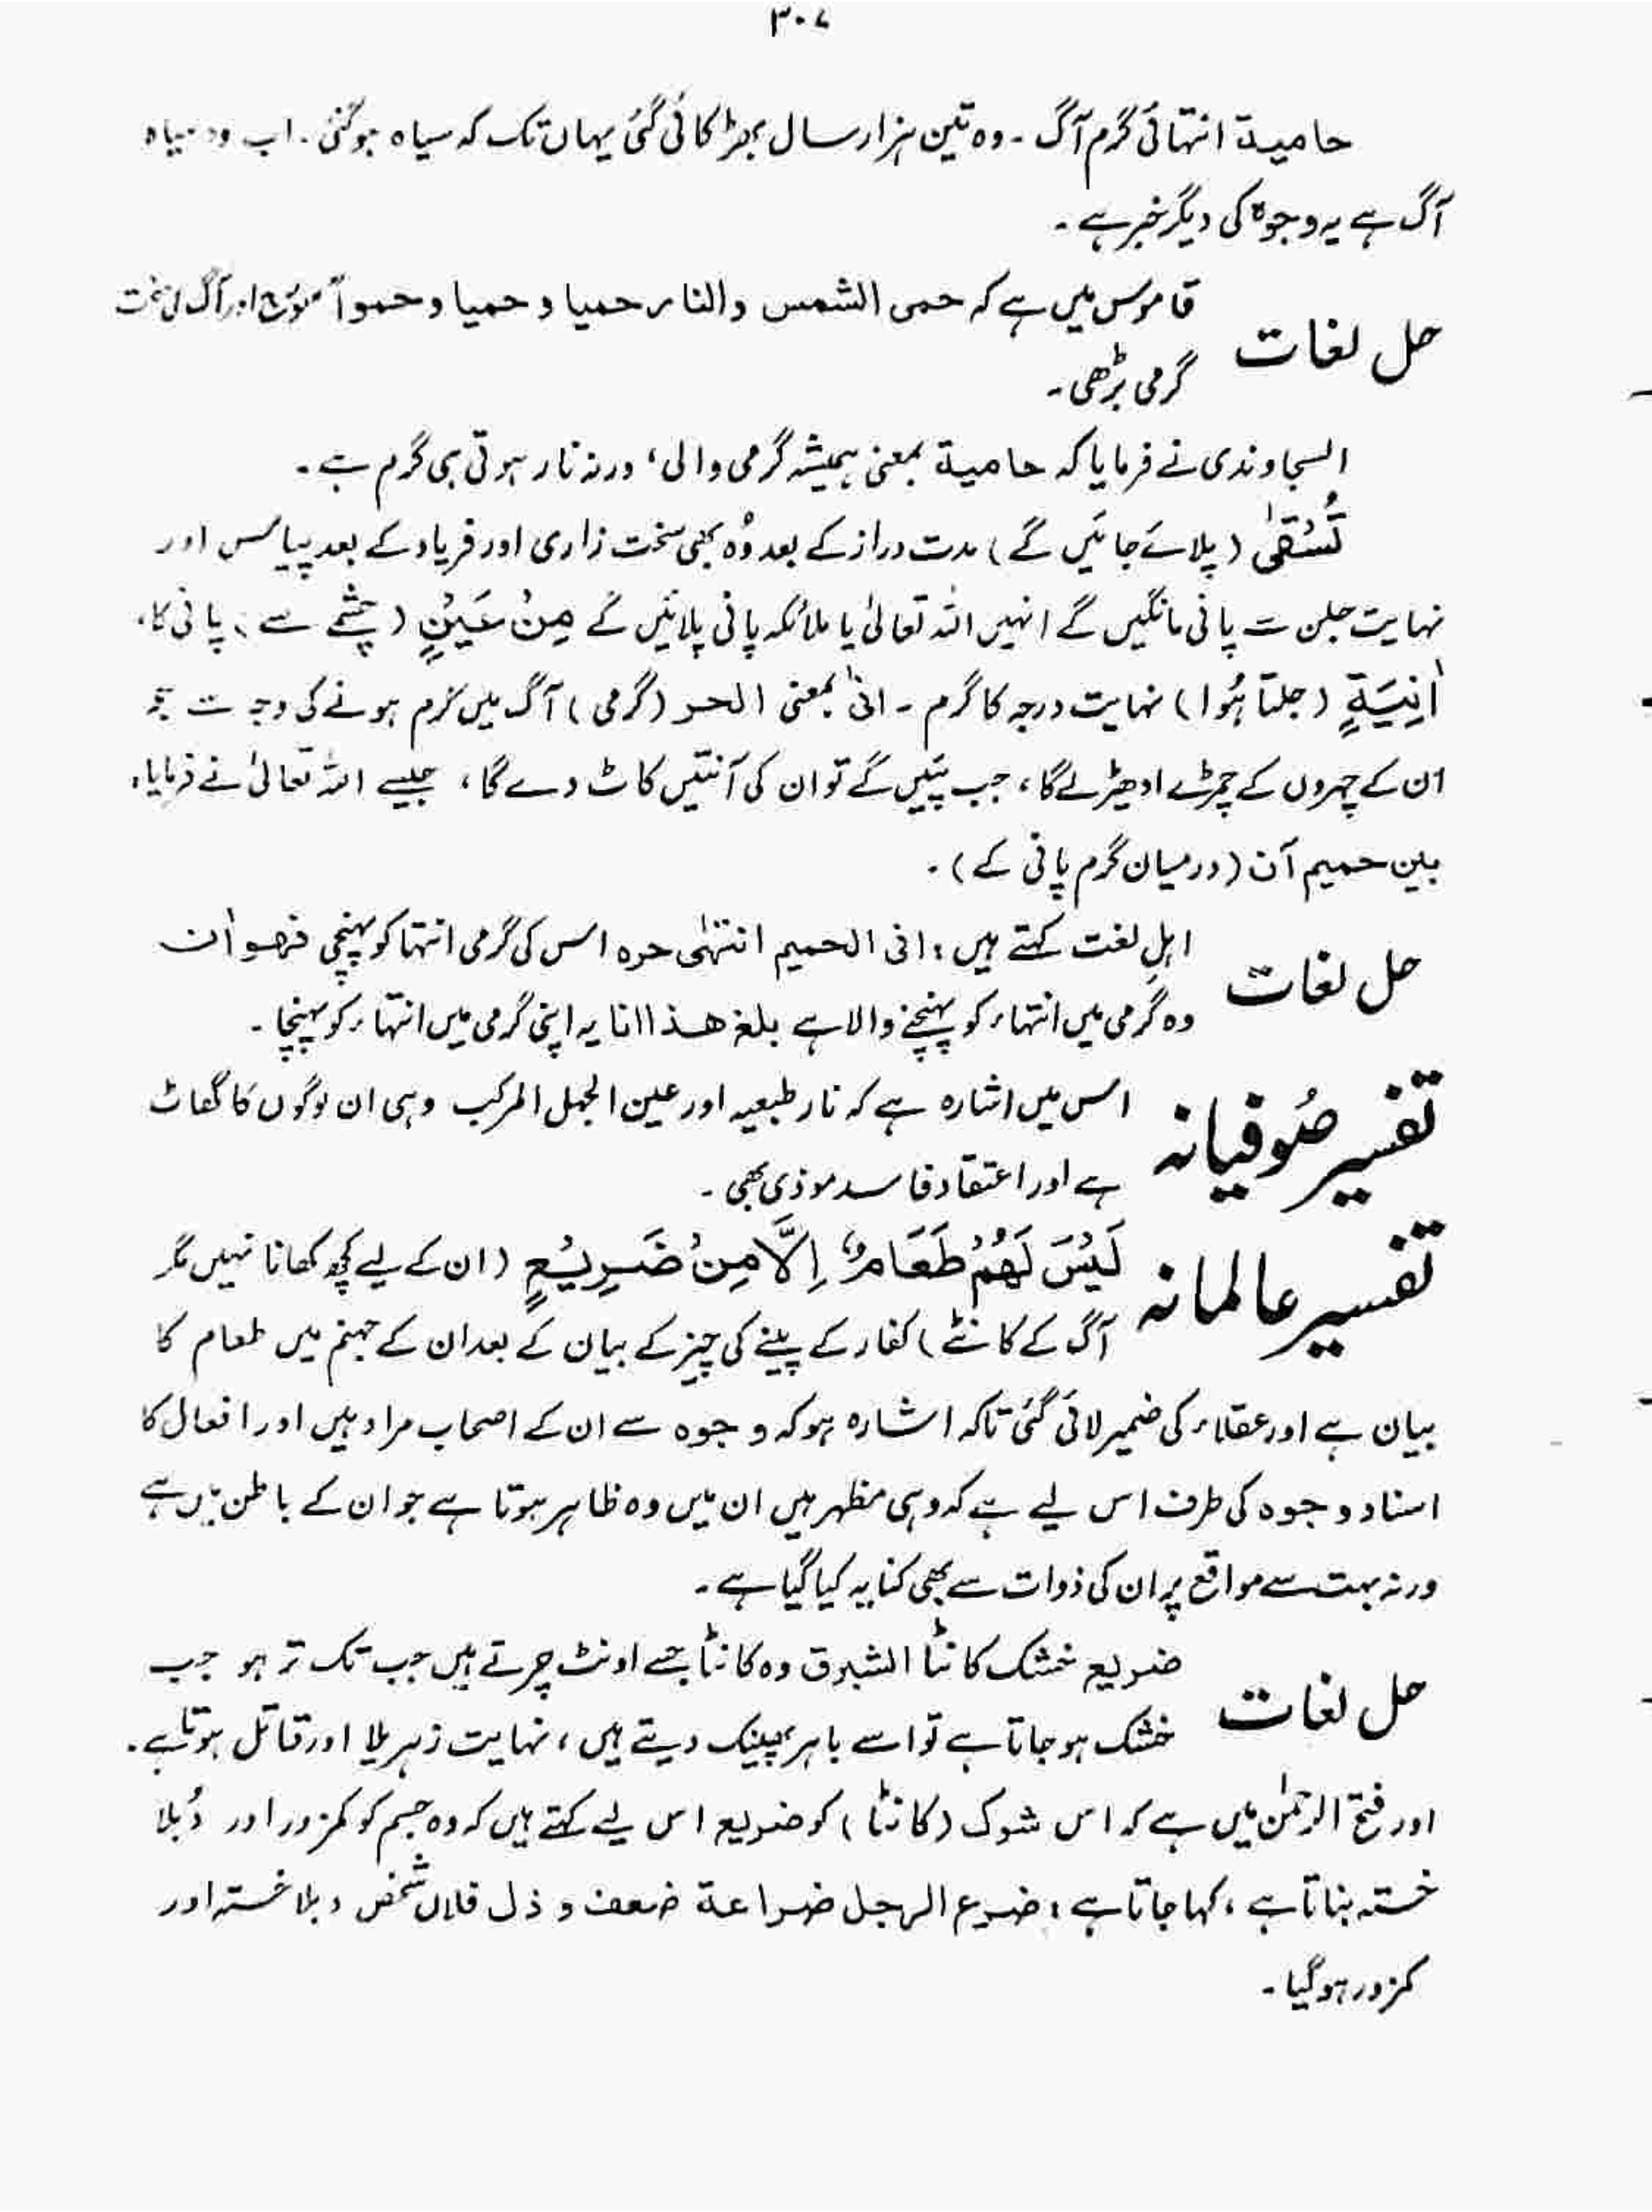 ۳۰۷
حامیة انتہائی گرم آگ ۔ وہ تین ہزار سال بھڑکائی گئی یہاں تک کہ سیاہ ہوگئی ۔ اب وہ سیاہ
آگ ہے یہ وجوہ کی دیگر خبر ہے ۔
حل لغات
قاموس میں ہے کہ حمی الشمس والنار حمیا و حمیا و حمواً سورج اور آگ کی سخت
گرمی بڑھی ۔
السجاوندی نے فرمایا کہ حامیة بمعنی ہمیشہ گرمی والی، ورنہ نار ہوتی ہی گرم ہے ۔
تُسْقٰی (پلائے جائیں گے) مدت دراز کے بعد وُہ بھی سخت زاری اور فریاد کے بعد پیاس اور
نہایت جلن سے پانی مانگیں گے انہیں اللہ تعالیٰ یا ملائکہ پانی پلائیں گے مِنْ عَیْنٍ (چشمے سے) پانی کا،
اٰنِیَةٍ (جلتا ہُوا) نہایت درجہ کا گرم ۔ انیٰ بمعنی الحر (گرمی) آگ میں گرم ہونے کی وجہ سے
ان کے چہروں کے چمڑے ادھیڑ لے گا، جب پئیں گے تو ان کی آنتیں کاٹ دے گا، جیسے اللہ تعالیٰ نے فرمایا،
بین حمیم آن (درمیان گرم پانی کے) ۔
حل لغات
اہلِ لغت کہتے ہیں : انی الحمیم انتهٰی حرہ اس کی گرمی انتہا کو پہنچی فهو اٰن
وہ گرمی میں انتہاء کو پہنچنے والا ہے بلغ هذا اناہ یہ اپنی گرمی میں انتہاء کو پہنچا ۔
تفسیر صُوفیانہ
اس میں اشارہ ہے کہ نار طبعیہ اور عین الجہل المرکب وہی ان لوگوں کا گھاٹ
ہے اور اعتقاد فاسد موذی بھی ۔
تفسیر عالمانہ
لَیْسَ لَهُمْ طَعَامٌ اِلَّا مِنْ ضَرِیْعٍ (ان کے لیے کچھ کھانا نہیں مگر
آگ کے کانٹے) کفار کے پینے کی چیز کے بیان کے بعد ان کے جہنم میں طعام کا
بیان ہے اور عقلاء کی ضمیر لائی گئی تاکہ اشارہ ہو کہ وجوہ سے ان کے اصحاب مراد ہیں اور افعال کا
اسناد وجوہ کی طرف اس لیے ہے کہ وہی مظہر ہیں ان میں وہ ظاہر ہوتا ہے جو ان کے باطن میں ہے
ورنہ بہت سے مواقع پر ان کی ذوات سے بھی کنایہ کیا گیا ہے ۔
حل لغات
ضریع خشک کانٹا الشبرق وہ کانٹا جسے اونٹ چرتے ہیں جب تک تر ہو جب
خشک ہو جاتا ہے تو اسے باہر پھینک دیتے ہیں، نہایت زہریلا اور قاتل ہوتا ہے ۔
اور فتح الرحمٰن میں ہے کہ اس شوک (کانٹا) کو ضریع اس لیے کہتے ہیں کہ وہ جسم کو کمزور اور دُبلا
خستہ بناتا ہے، کہا جاتا ہے : ضرع الرجل ضراعة ضعف و ذل فلاں شخص دبلا خستہ اور
کمزور ہوگیا ۔